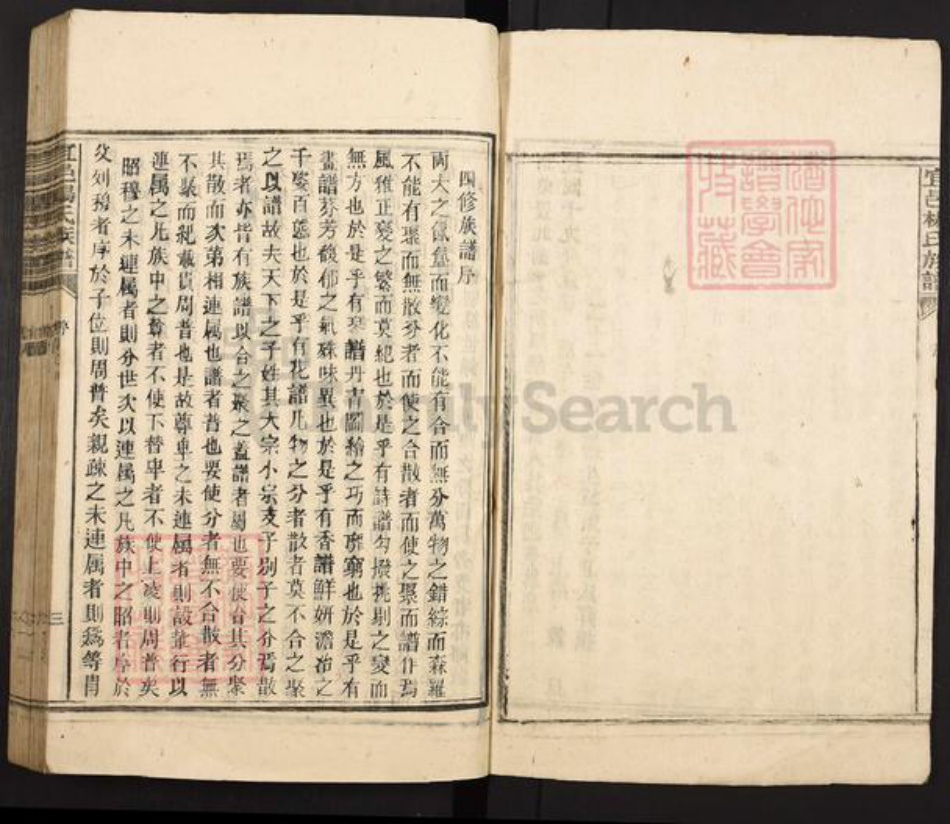 宜邑楊氏族譜
四修族譜序
兩大之氤氳而變化不能有合而無分萬物之錯綜而森羅
不能有聚而無散分者而使之合散者而使之聚而譜作焉
風雅正變之繁而莫紀也於是乎有詩譜勾撥挑剔之變而
無方也於是乎有琴譜丹青圖繪之巧而靡窮也於是乎有
畫譜芬芳馥郁之氣殊味異也於是乎有香譜鮮妍澹冶之
千姿百態也於是乎有花譜凡物之分者散者莫不合之聚
之以譜故夫天下之子姓其大宗小宗支子別子之分焉散
焉者亦皆有族譜以合之聚之蓋譜者屬也要使合其分聚
其散而次第相連屬也譜者普也要使分者無不合散者無
不聚而紀載貴周普也是故尊卑之未連屬者則設輩行以
連屬之凡族中之尊者不使下替卑者不使上凌則周普矣
昭穆之未連屬者則分世次以連屬之凡族中之昭者序於
父列穆者序於子位則周普矣親疎之未連屬者則爲等胄
宜邑楊氏族譜
序
三
FamilySearch